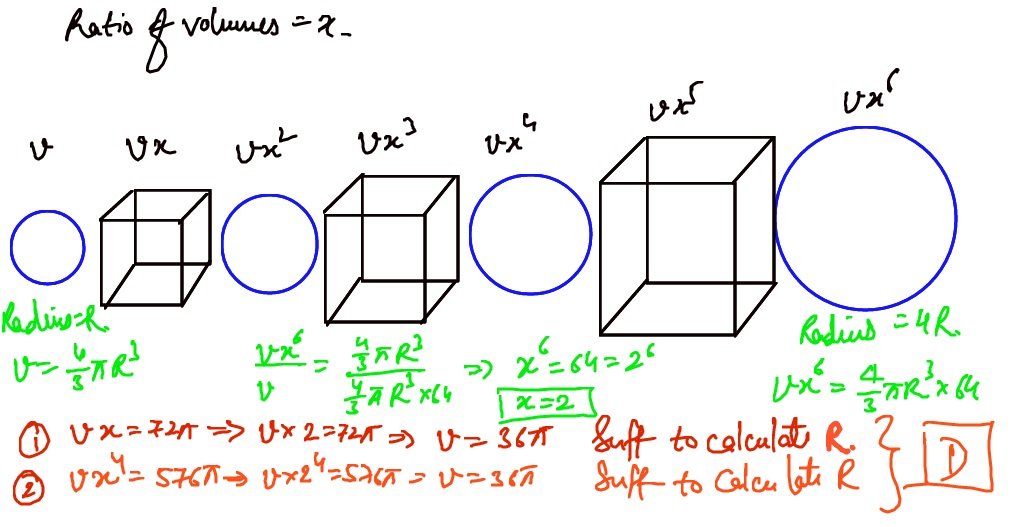 Ratio of volumes = x.
v vx vx² vx³ vx⁴ vx⁵ vx⁶
Radius=R. Radius = 4R.
v = 4/3 πR³ vx⁶/v = (4/3 πR³)/(4/3 πR³×64) => x⁶=64=2⁶ vx⁶ = 4/3 πR³×64
x=2
① vx=72π => v×2=72π => v=36π Suff to calculate R.
② vx⁴=576π → v×2⁴=576π = v=36π Suff to Calculate R } D